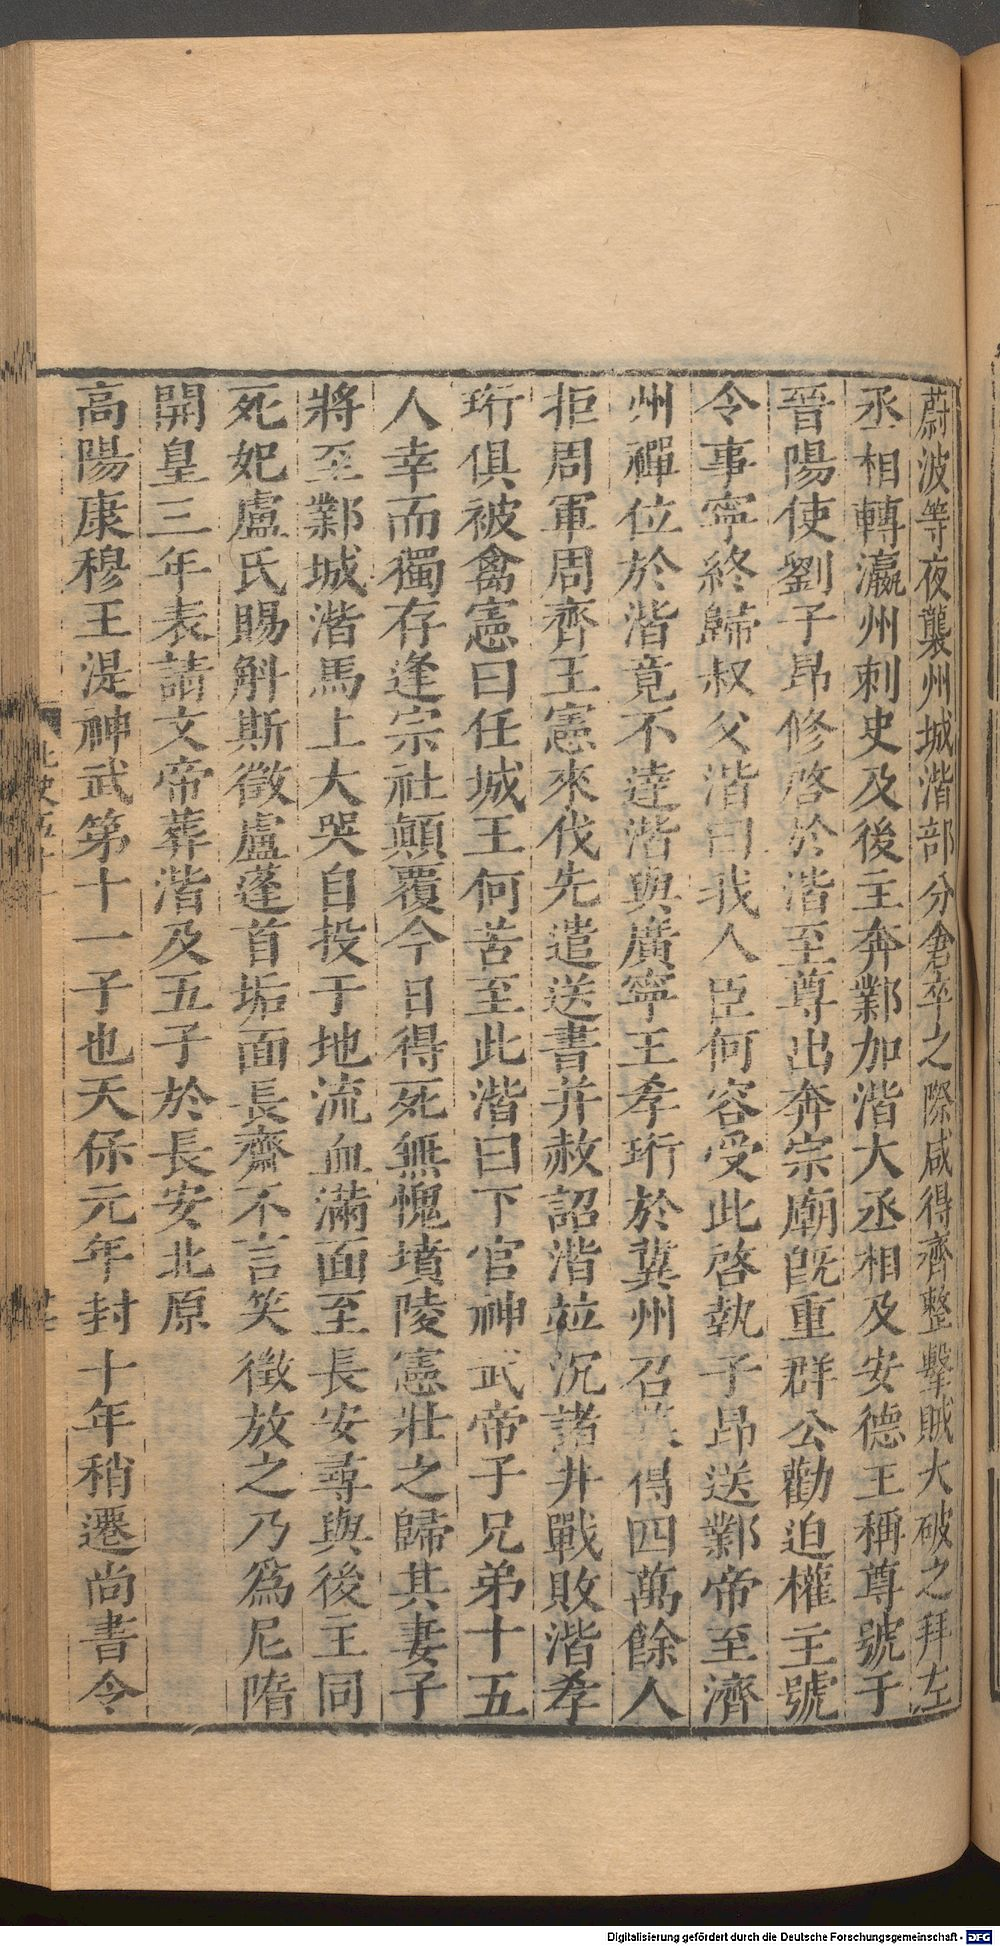 蔚波等夜襲州城湝部分倉卒之際咸得齊整擊賊大破之拜左
丞相轉瀛州刺史及後主奔鄴加湝大丞相及安德王稱尊號于
晉陽使劉子昂修啓於湝至尊出奔宗廟既重群公勸迫權主號
令事寧終歸叔父湝曰我人臣何容受此啓執子昂送鄴帝至濟
州禪位於湝竟不達湝與廣寧王孝珩於冀州召募得四萬餘人
拒周軍周齊王憲來伐先遣送書并赦詔湝竝沉諸井戰敗湝孝
珩俱被禽憲曰任城王何苦至此湝曰下官神武帝子兄弟十五
人幸而獨存逢宗社顛覆今日得死無愧墳陵憲壯之歸其妻子
將至鄴城湝馬上大哭自投于地流血滿面至長安尋與後主同
死妃盧氏賜斛斯徵盧蓬首垢面長齋不言笑徵放之乃為尼隋
開皇三年表請文帝葬湝及五子於長安北原
高陽康穆王湜神武第十一子也天保元年封十年稍遷尚書令
北史五十一
Digitalisierung gefördert durch die Deutsche Forschungsgemeinschaft - DFG